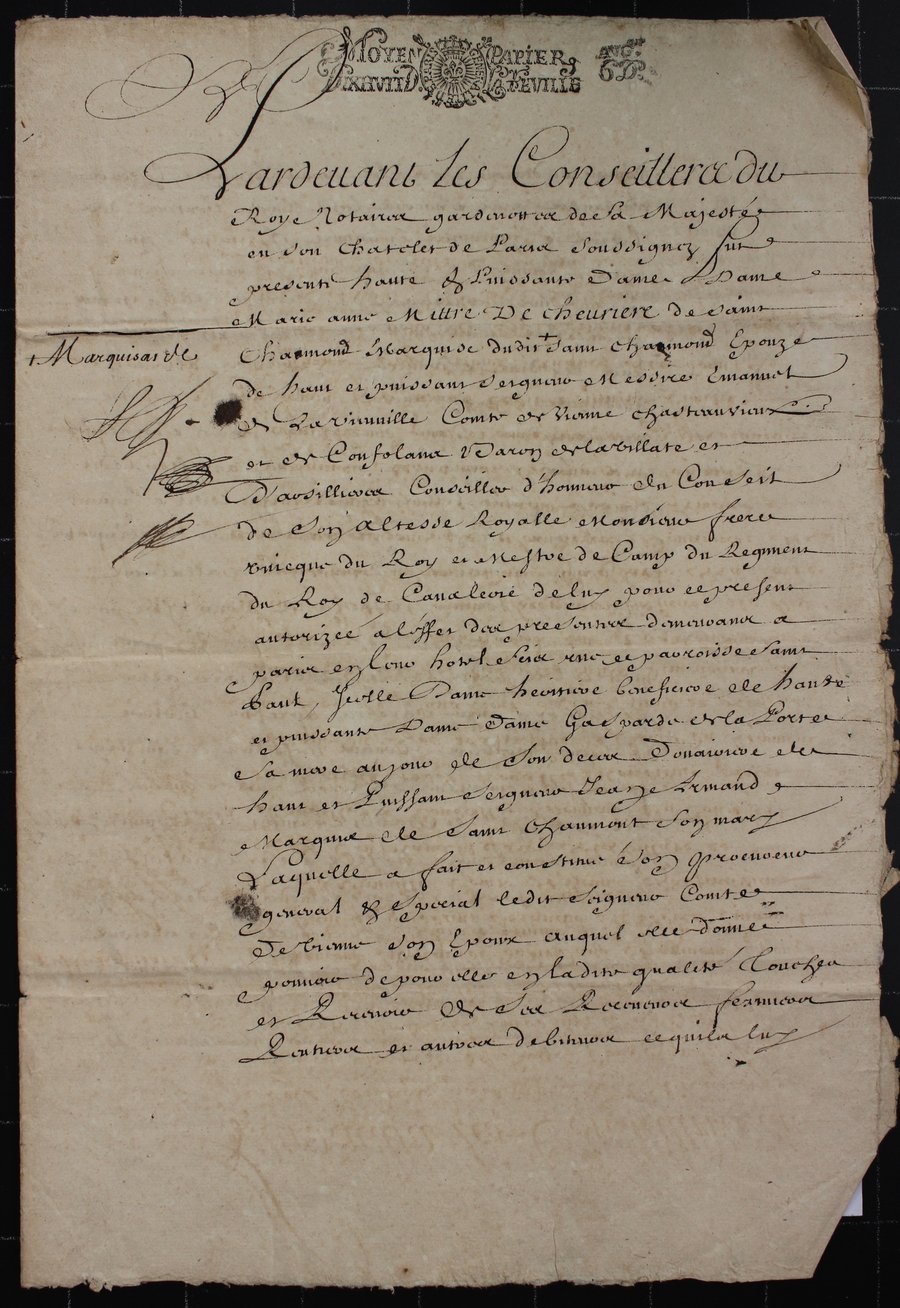 MOYEN PAPIER AUG.
DIXHUIT D. LA FEUILLE 6 D.
Pardeuant les Conseillers du
Roy Notaires gardenottes de Sa Majesté
en son Chatelet de Paris soussignez fut
presente haute & Puissante Dame Dame
Marie anne Mittre De Cheuriere de saint
Chaumond Marquise dudit + saint Chaumond Epouze
+ Marquisat de
de haut et puissant seigneur Messire Emanuel
de Lavieuville Comte de Vienne Chasteauvieux
et de Confolans Baron de lavillate et
Darsillieres Conseiller d'honneur du Conseil
de Son Altesse Royalle Monsieur frere
vnicque du Roy et Mestre de Camp du Regiment
du Roy de Caualerie deluy pour ce present
autorizée a l'effet des presentes demeurans a
paris en leur hotel sciz rue et parroisse saint
Paul, Jcelle Dame heritiere beneficiere de haute
et puissante Dame Dame Gasparde de la Porte
sa mere au jour de son deces Douairiere de
haut et Puissant seigneur Jean Armand
Marquis de saint Chaumont son mary
Laquelle a fait et constitué son procureur
general & special ledit seigneur Comte
de vienne son Epoux auquel elle donne
pouuoir de pour elle en ladite qualité Toucher
et Receuoir de ses Receueurs fermiers
Rentiers et autres debiteurs ce quils luy